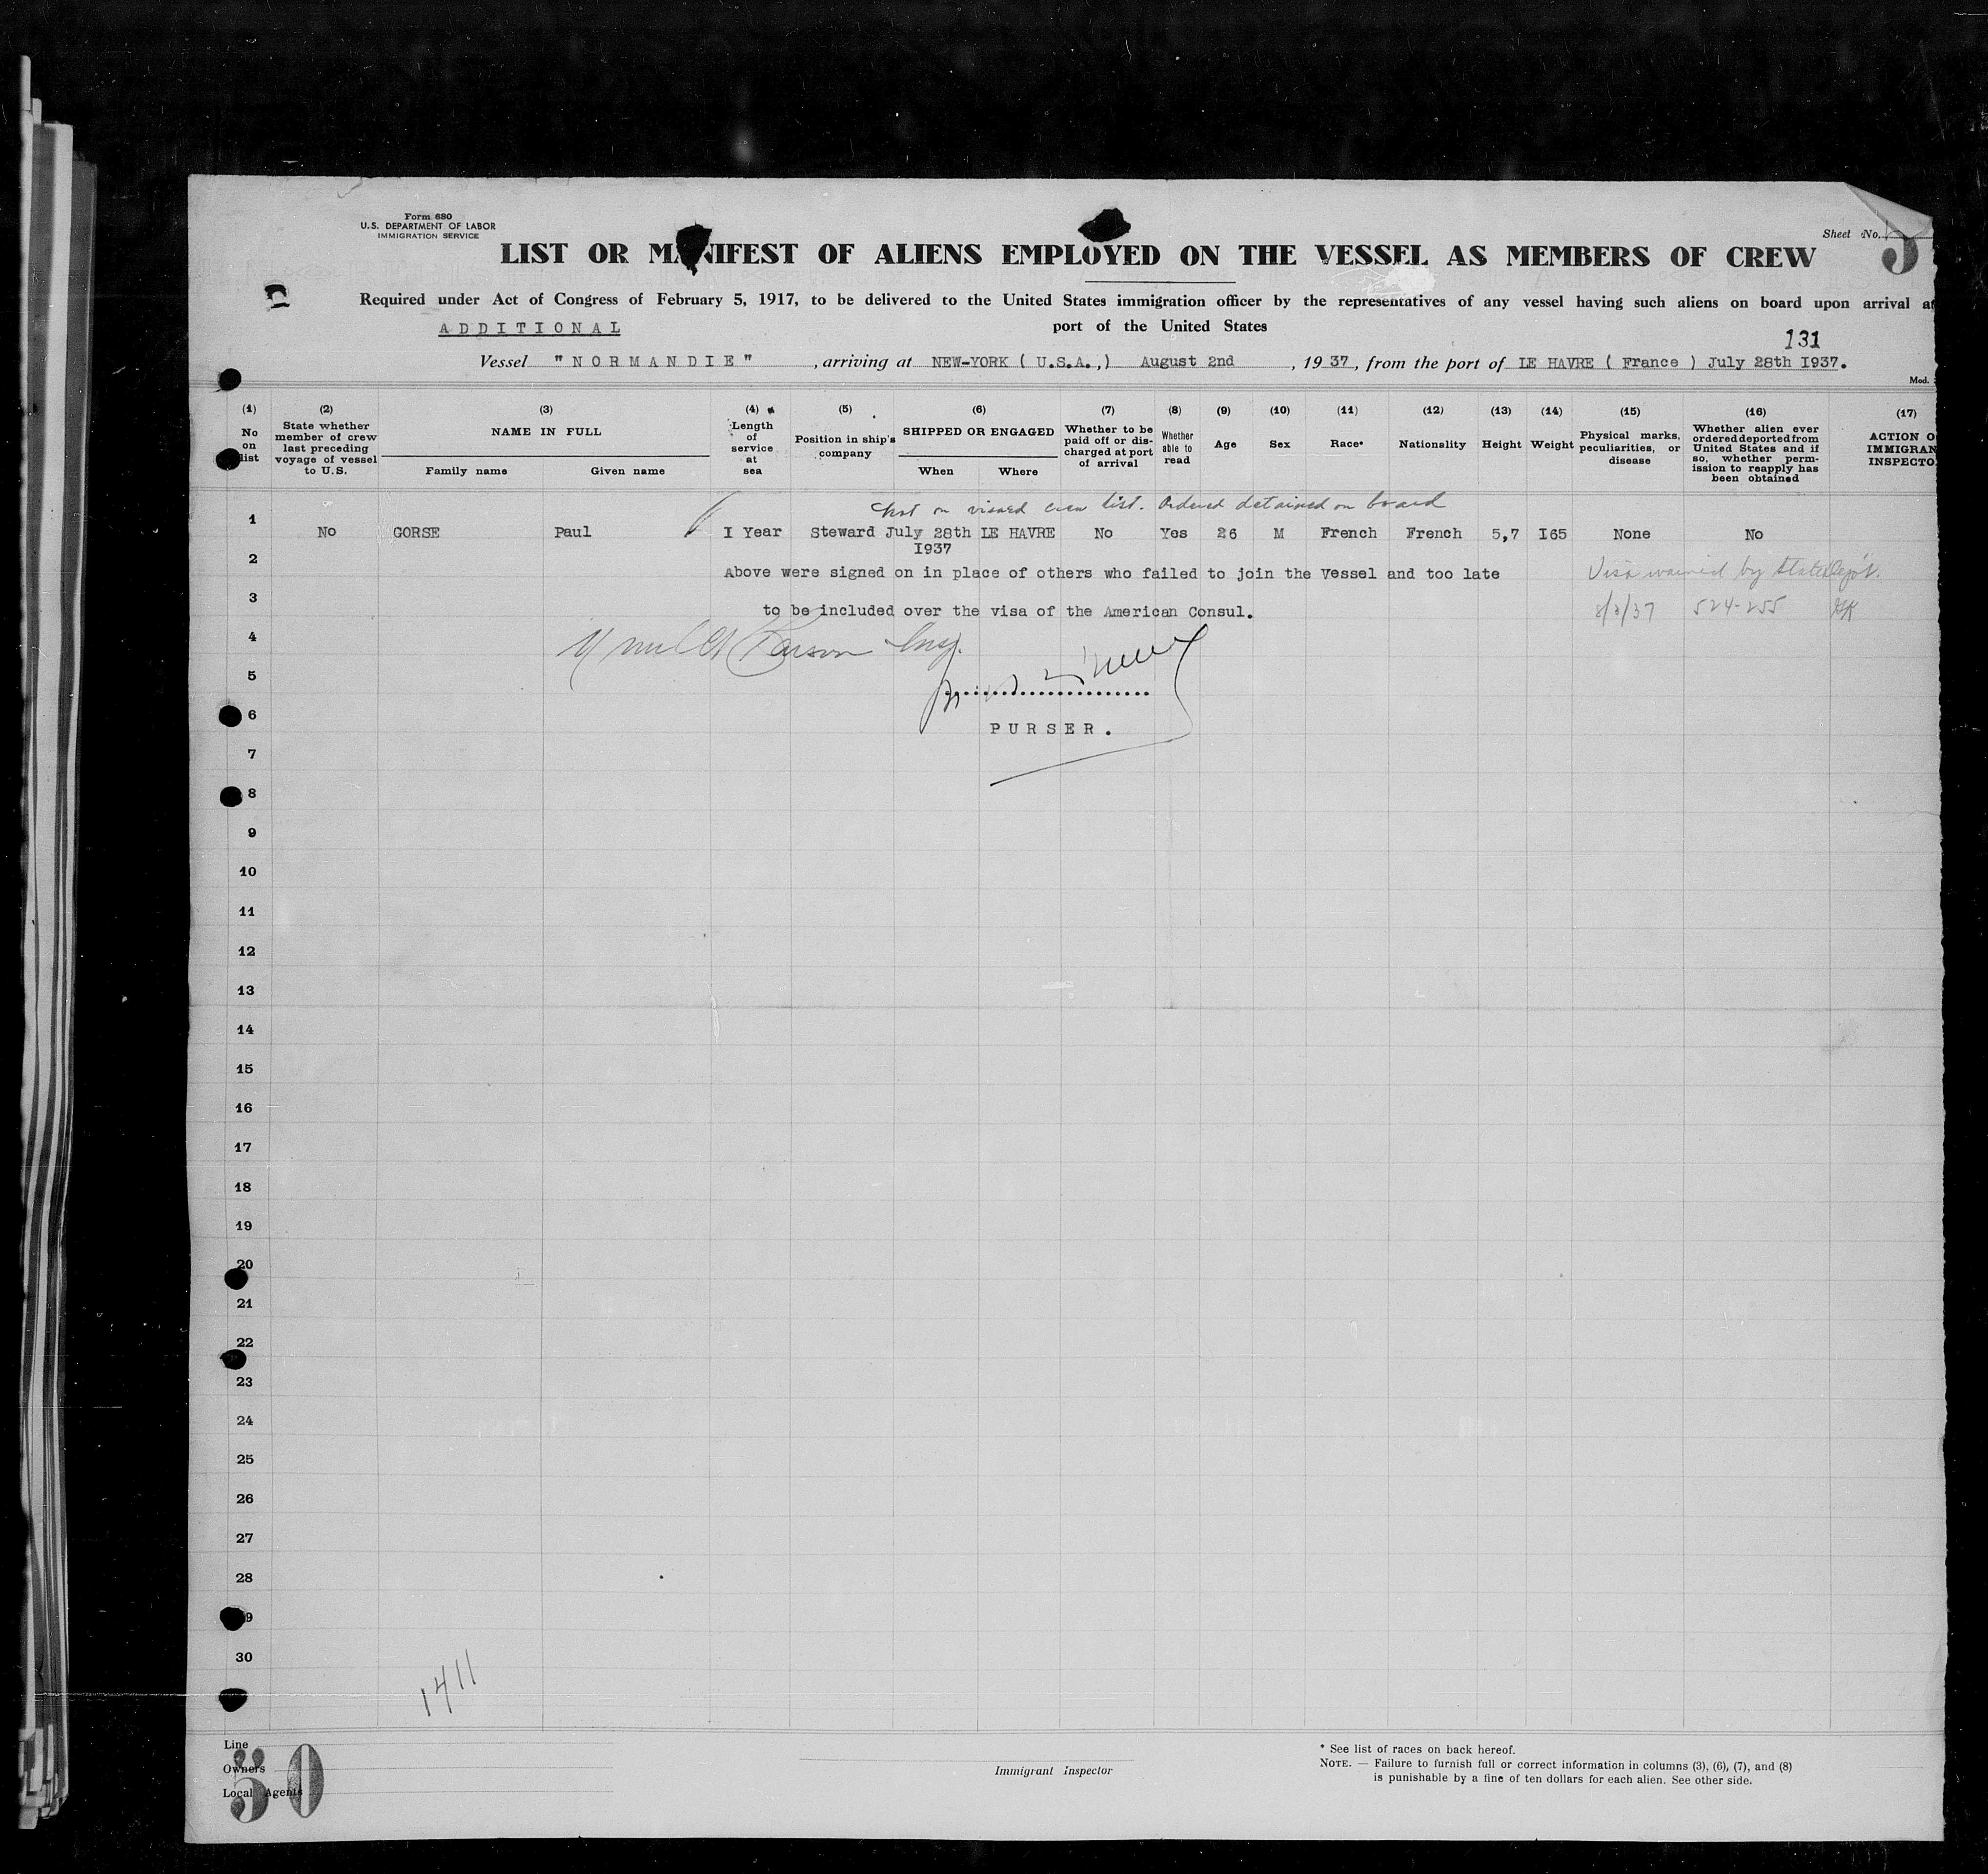 Form 680
U.S. DEPARTMENT OF LABOR
IMMIGRATION SERVICE
Sheet No. 5
LIST OR MANIFEST OF ALIENS EMPLOYED ON THE VESSEL AS MEMBERS OF CREW
Required under Act of Congress of February 5, 1917, to be delivered to the United States immigration officer by the representatives of any vessel having such aliens on board upon arrival at
ADDITIONAL port of the United States
131
Vessel "NORMANDIE", arriving at NEW-YORK ( U.S.A.,) August 2nd, 1937, from the port of LE HAVRE ( France ) July 28th I937.
Mod.
(1) No on list
(2) State whether member of crew last preceding voyage of vessel to U.S.
(3) NAME IN FULL Family name Given name
(4) Length of service at sea
(5) Position in ship's company
(6) SHIPPED OR ENGAGED When Where
(7) Whether to be paid off or discharged at port of arrival
(8) Whether able to read
(9) Age
(10) Sex
(11) Race*
(12) Nationality
(13) Height
(14) Weight
(15) Physical marks, peculiarities, or disease
(16) Whether alien ever ordered deported from United States and if so, whether permission to reapply has been obtained
(17) ACTION O IMMIGRAN INSPECTO
Not on visaed crew list. Ordered detained on board
1 No GORSE Paul I Year Steward July 28th LE HAVRE No Yes 26 M French French 5,7 I65 None No
I937
2 Above were signed on in place of others who failed to join the Vessel and too late Visa waived by State Dep't.
3 to be included over the visa of the American Consul. 8/3/37 524-255
4
5
6 PURSER.
7
8
9
10
11
12
13
14
15
16
17
18
19
20
21
22
23
24
25
26
27
28
29
30
1411
Line
Owners
Local Agents
50
Immigrant Inspector
* See list of races on back hereof.
NOTE. — Failure to furnish full or correct information in columns (3), (6), (7), and (8)
is punishable by a fine of ten dollars for each alien. See other side.